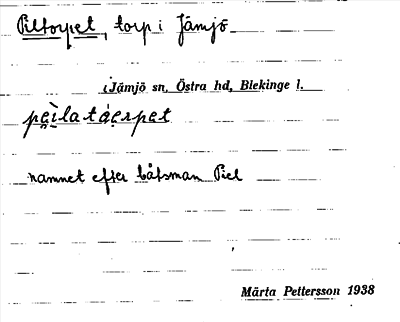 Piltorpet, torp i Jämjö
i Jämjö sn, Östra hd, Blekinge l.
namnet efter båtsman Piel
Märta Pettersson 1938